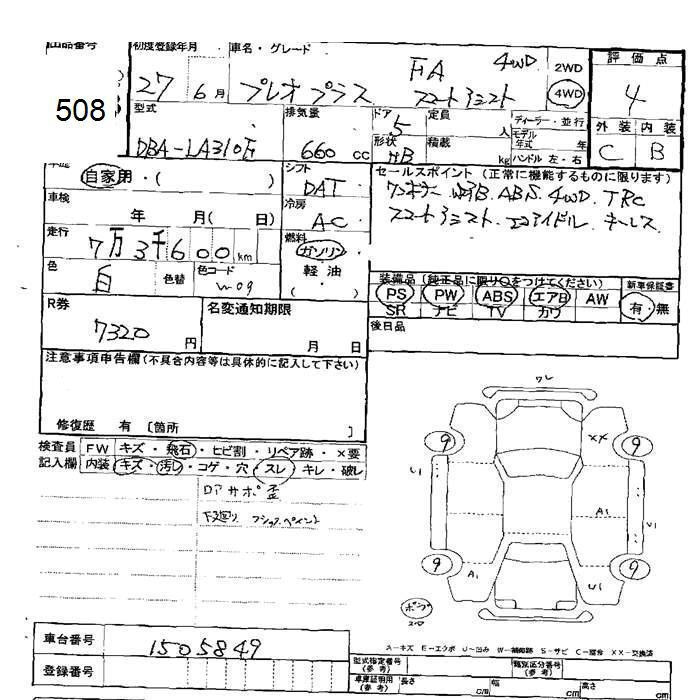 出品番号 初度登録年月 車名・グレード 評価点
508 27 6月 プレオプラス FA 4WD スマートアシスト 2WD 4WD 4
型式 排気量 ドア 定員 ディーラー・並行 外装 内装
DBA-LA310F 660 CC 5 人 モデル年式 年 C B
形状 HB 積載 kg ハンドル 左・右
自家用・( ) シフト DAT セールスポイント(正常に機能するものに限ります)
車検 年 月( 日) 冷房 AC ワンオーナー WエアB. ABS. 4WD. TRC
スマートアシスト. エコアイドル キーレス
走行 7万3千600km 燃料 ガソリン 軽油 ( )
色 白 色替 色コード W-09
装備品(純正品に限り○をつけてください) 新車保証書
PS PW ABS エアB AW 有・無
SR ナビ TV カワ
R券 7320円 名変通知期限 月 日 後日品
注意事項申告欄(不具合内容等は具体的に記入して下さい)
修復歴 有 [箇所 ]
検査員 FW キズ・飛石・ヒビ割・リペア跡・×要
記入欄 内装 キズ・汚れ・コゲ・穴・スレ・キレ・破レ
ロアサポ歪
下廻り フショク.ペイント
ワレ
9 XX 9
U1 A1 U1
9 A1 U1 9
A-キズ E-エクボ U-凹み W-補修跡 S-サビ C-腐蝕 XX-交換済
車台番号 1505849
型式指定番号(参考) 類別区分番号(参考)
登録番号 車庫証明用(参考) 長さ cm 幅 cm 高さ cm